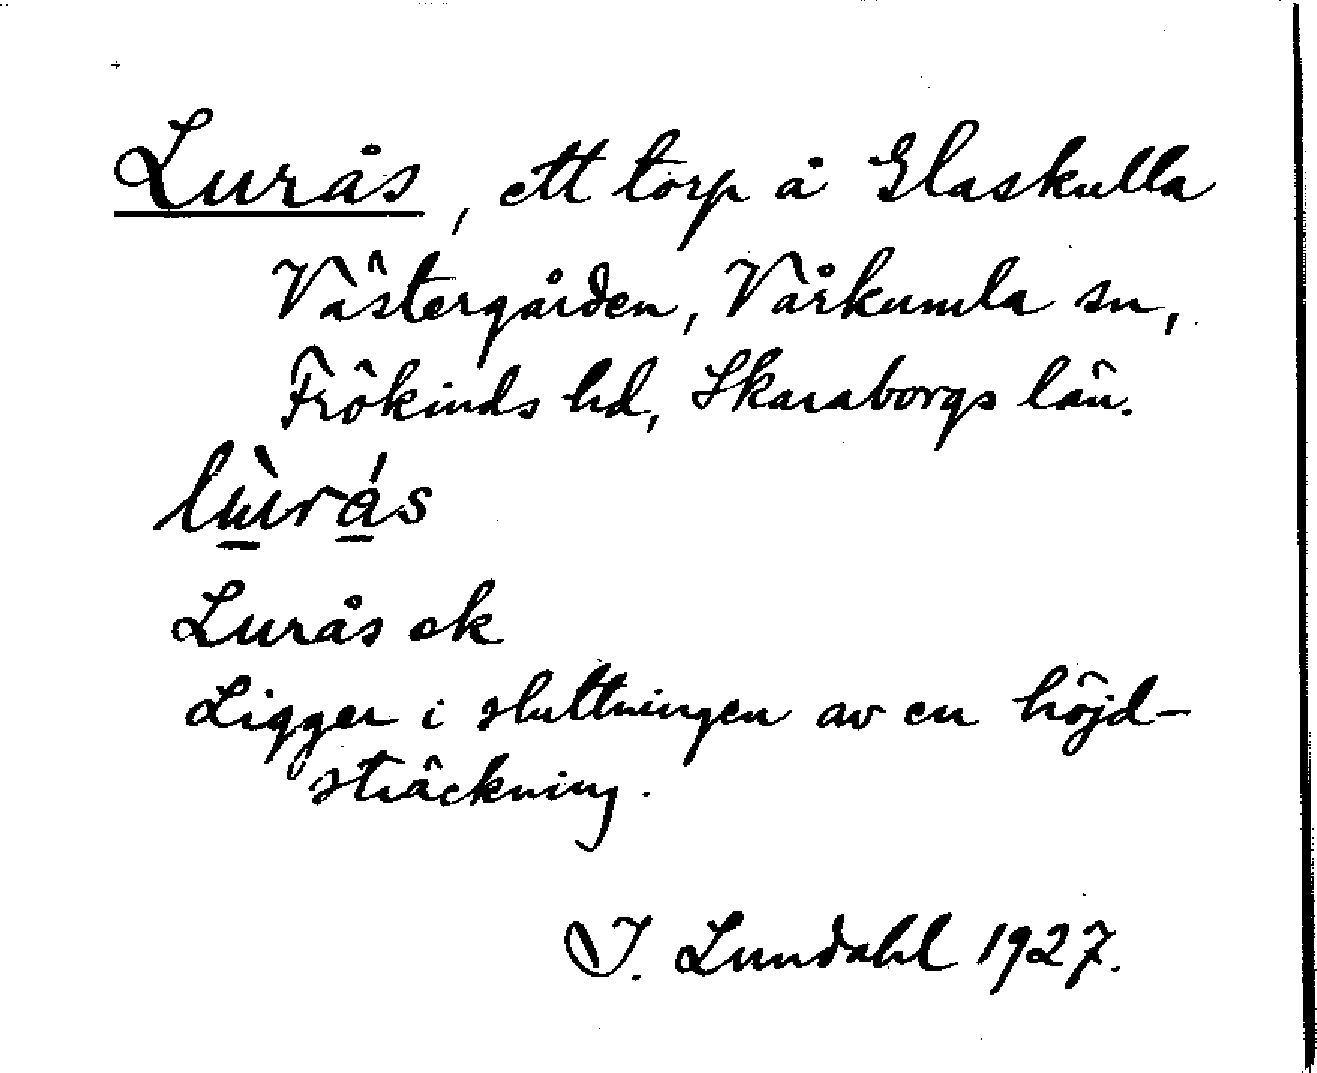 Lurås, ett torp å Slaskulla
Västergården, Vårkumla sn,
Frökinds hd, Skaraborgs län.
lùrás
Lurås ek
Ligger i sluttningen av en höjd-
sträckning.
I. Lundahl 1927.